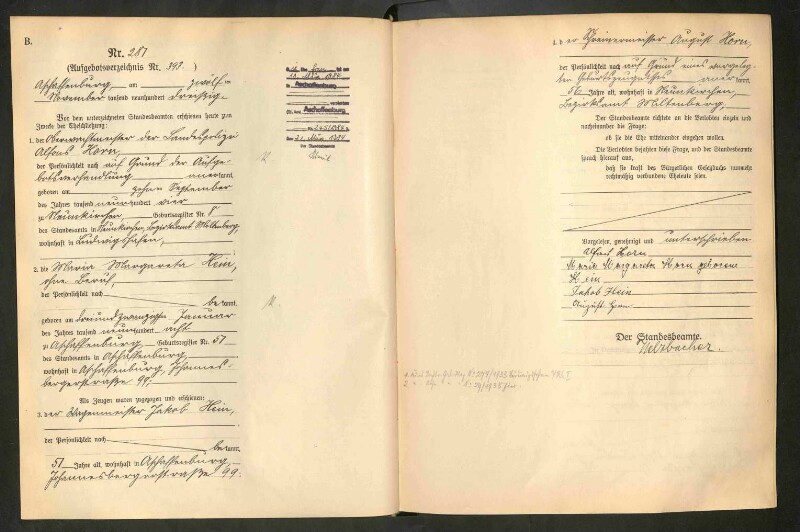 B.
Nr. 287
(Aufgebotsverzeichnis Nr. 397.)
Aschaffenburg, am zwölften
November tausend neunhundert dreißig
Vor dem unterzeichneten Standesbeamten erschienen heute zum
Zwecke der Eheschließung:
1. der Oberwachtmeister der Landespolizei
Alfons Horn,
der Persönlichkeit nach auf Grund der Aufge-
botsverhandlung anerkannt,
geboren am zehnten September
des Jahres tausend neunhundert vier
zu Neunkirchen, Geburtsregister Nr. 8
des Standesamts in Neunkirchen, Bezirksamt Miltenberg,
wohnhaft in Ludwigshafen,
2. die Maria Margareta Hein,
ohne Beruf,
der Persönlichkeit nach
bekannt,
geboren am dreiundzwanzigsten Januar
des Jahres tausend neunhundert acht
zu Aschaffenburg, Geburtsregister Nr. 51
des Standesamts in Aschaffenburg,
wohnhaft in Aschaffenburg, Johannes-
bergerstraße 99;
Als Zeugen waren zugezogen und erschienen:
3. der Wagenmeister Jakob Hein,
der Persönlichkeit nach
bekannt,
51 Jahre alt, wohnhaft in Aschaffenburg,
Johannesbergerstraße 99.
Aschaffenburg
4. der Schreinermeister August Horn,
der Persönlichkeit nach auf Grund eines vorgeleg-
ten Geburtszeugnisses anerkannt,
56 Jahre alt, wohnhaft in Neunkirchen,
Bezirksamt Miltenberg.
Der Standesbeamte richtete an die Verlobten einzeln und
nacheinander die Frage:
ob sie die Ehe miteinander eingehen wollen.
Die Verlobten bejahten diese Frage, und der Standesbeamte
sprach hierauf aus,
daß sie kraft des Bürgerlichen Gesetzbuchs nunmehr
rechtmäßig verbundene Eheleute seien.
Vorgelesen, genehmigt und unterschrieben
Alfons Horn
Maria Margareta Horn geborene
Hein
Jakob Hein
August Horn
Der Standesbeamte.
Welzbacher.